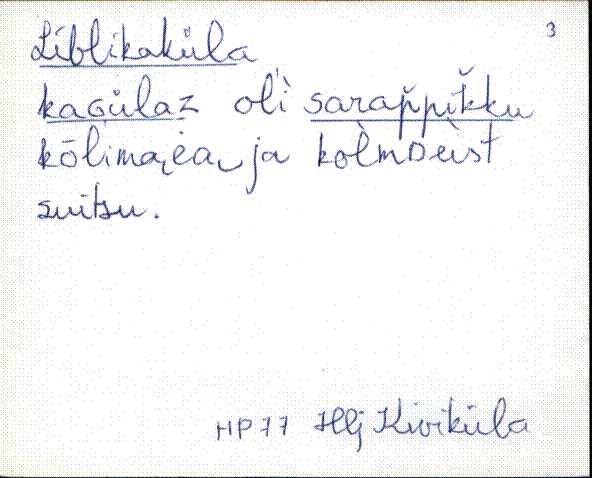 3
Liblikaküla
kaGülaz oli sarap̌pik̆ku
kōlimai̯ea ja kolmDeist
suitsu.
HP 77 Hlj Kiviküla